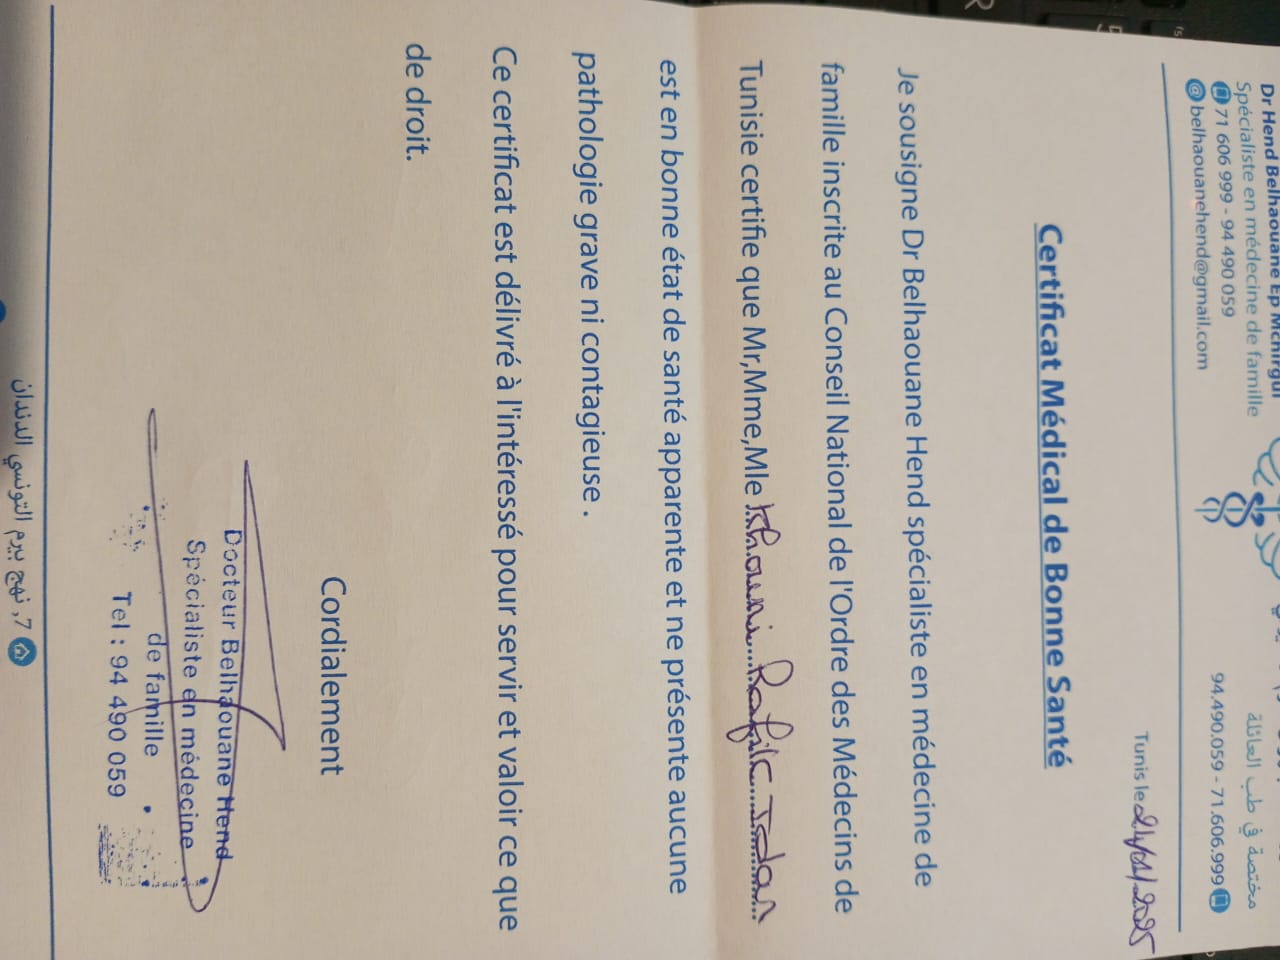 Dr Hend Belhaouane Ep Mchirgui
Spécialiste en médecine de famille
71 606 999 - 94 490 059
@ belhaouanehend@gmail.com
مختصة في طب العائلة
94.490.059 - 71.606.999
Tunis le 24/01/2025
Certificat Médical de Bonne Santé
Je sousigne Dr Belhaouane Hend spécialiste en médecine de
famille inscrite au Conseil National de l'Ordre des Médecins de
Tunisie certifie que Mr,Mme,Mle Khouni Rafik
est en bonne état de santé apparente et ne présente aucune
pathologie grave ni contagieuse .
Ce certificat est délivré à l'intéressé pour servir et valoir ce que
de droit.
Cordialement
Docteur Belhaouane Hend
Spécialiste en médecine
de famille
Tel : 94 490 059
7, نهج بيرم التونسي الدندان